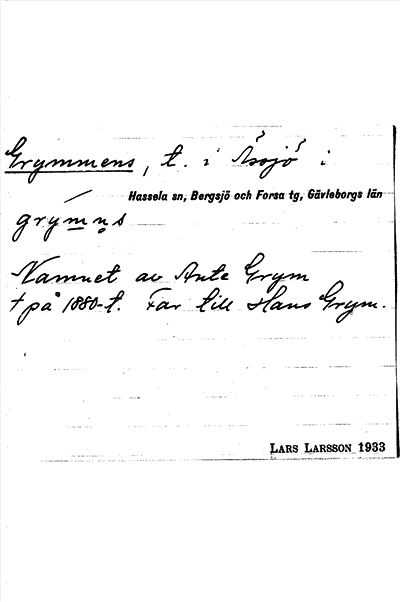 Grymmens, t. i Åsjö i
Hassela sn, Bergsjö och Forsa tg, Gävleborgs län
grymn̥s
Namnet av Ante Grym
† på 1880-t. Far till Hans Grym.
LARS LARSSON 1933